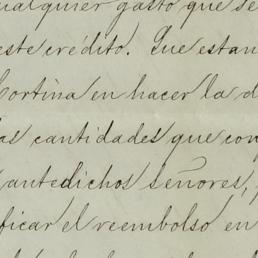 ualquier gasto que se
este crédito. Que estan
Cortina en hacer la d
las cantidades que con
antedichos señores,
ficar el reembolso en